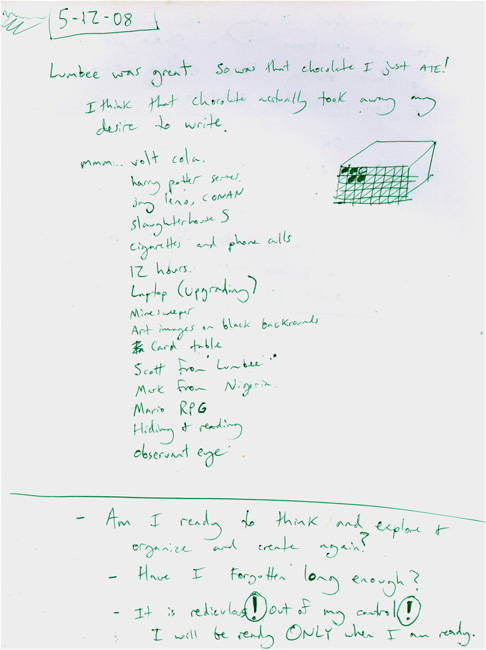 5-12-08
Lumbee was great. So was that chocolate I just ATE!
I think that chocolate actually took away any
desire to write.
mmm... volt cola.
harry potter series.
jay leno, CONAN
slaughterhouse 5
cigarettes and phone calls
12 hours.
Laptop (upgrading?)
Minesweeper
Art images on black backrounds
Card table
Scott from "Lumbee"
Mark from Nigeria
Mario RPG
Hiding & reading
observant eye
- Am I ready to think and explore &
organize and create again?
- Have I forgotten long enough?
- It is rediculous! Out of my control!
I will be ready ONLY when I am ready.